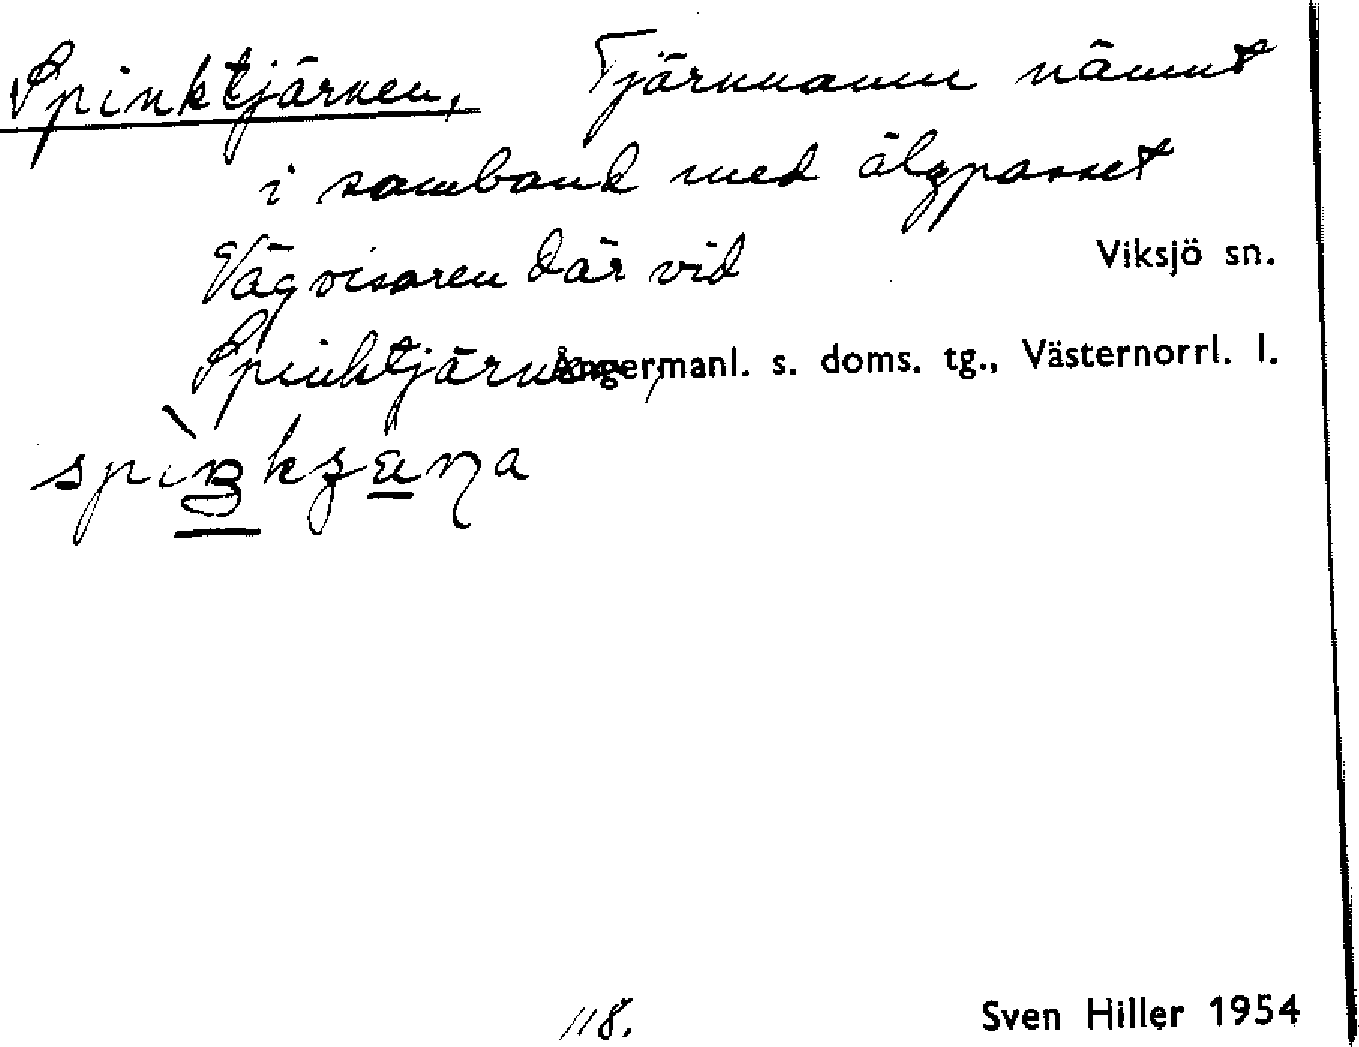 Spinktjärnen, Tjärnnamn nämnt
i samband med älgpasset
Vägvisaren där vid Viksjö sn.
Spinktjärnen, Ångermanl. s. doms. tg., Västernorrl. l.
118. Sven Hiller 1954